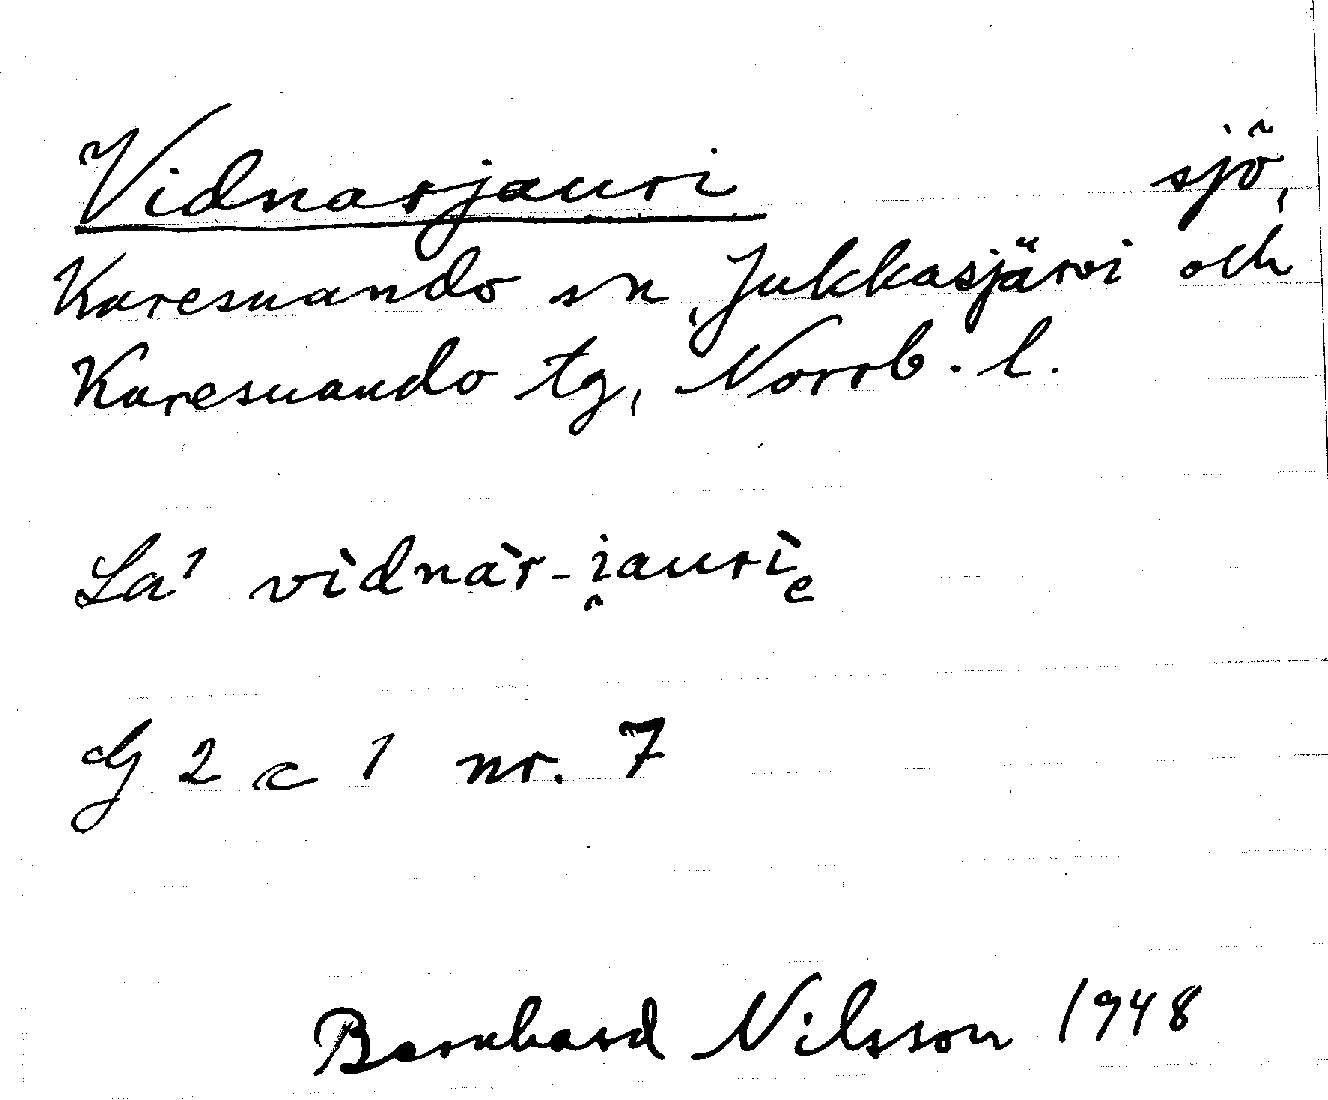 Vidnarjauri sjö,
Karesuando sn, Jukkasjärvi och
Karesuando tg, Norrb. l.
La1 vìdnàr-i̯auriₑ
G 2 c 1 nr. 7
Bernhard Nilsson 1948